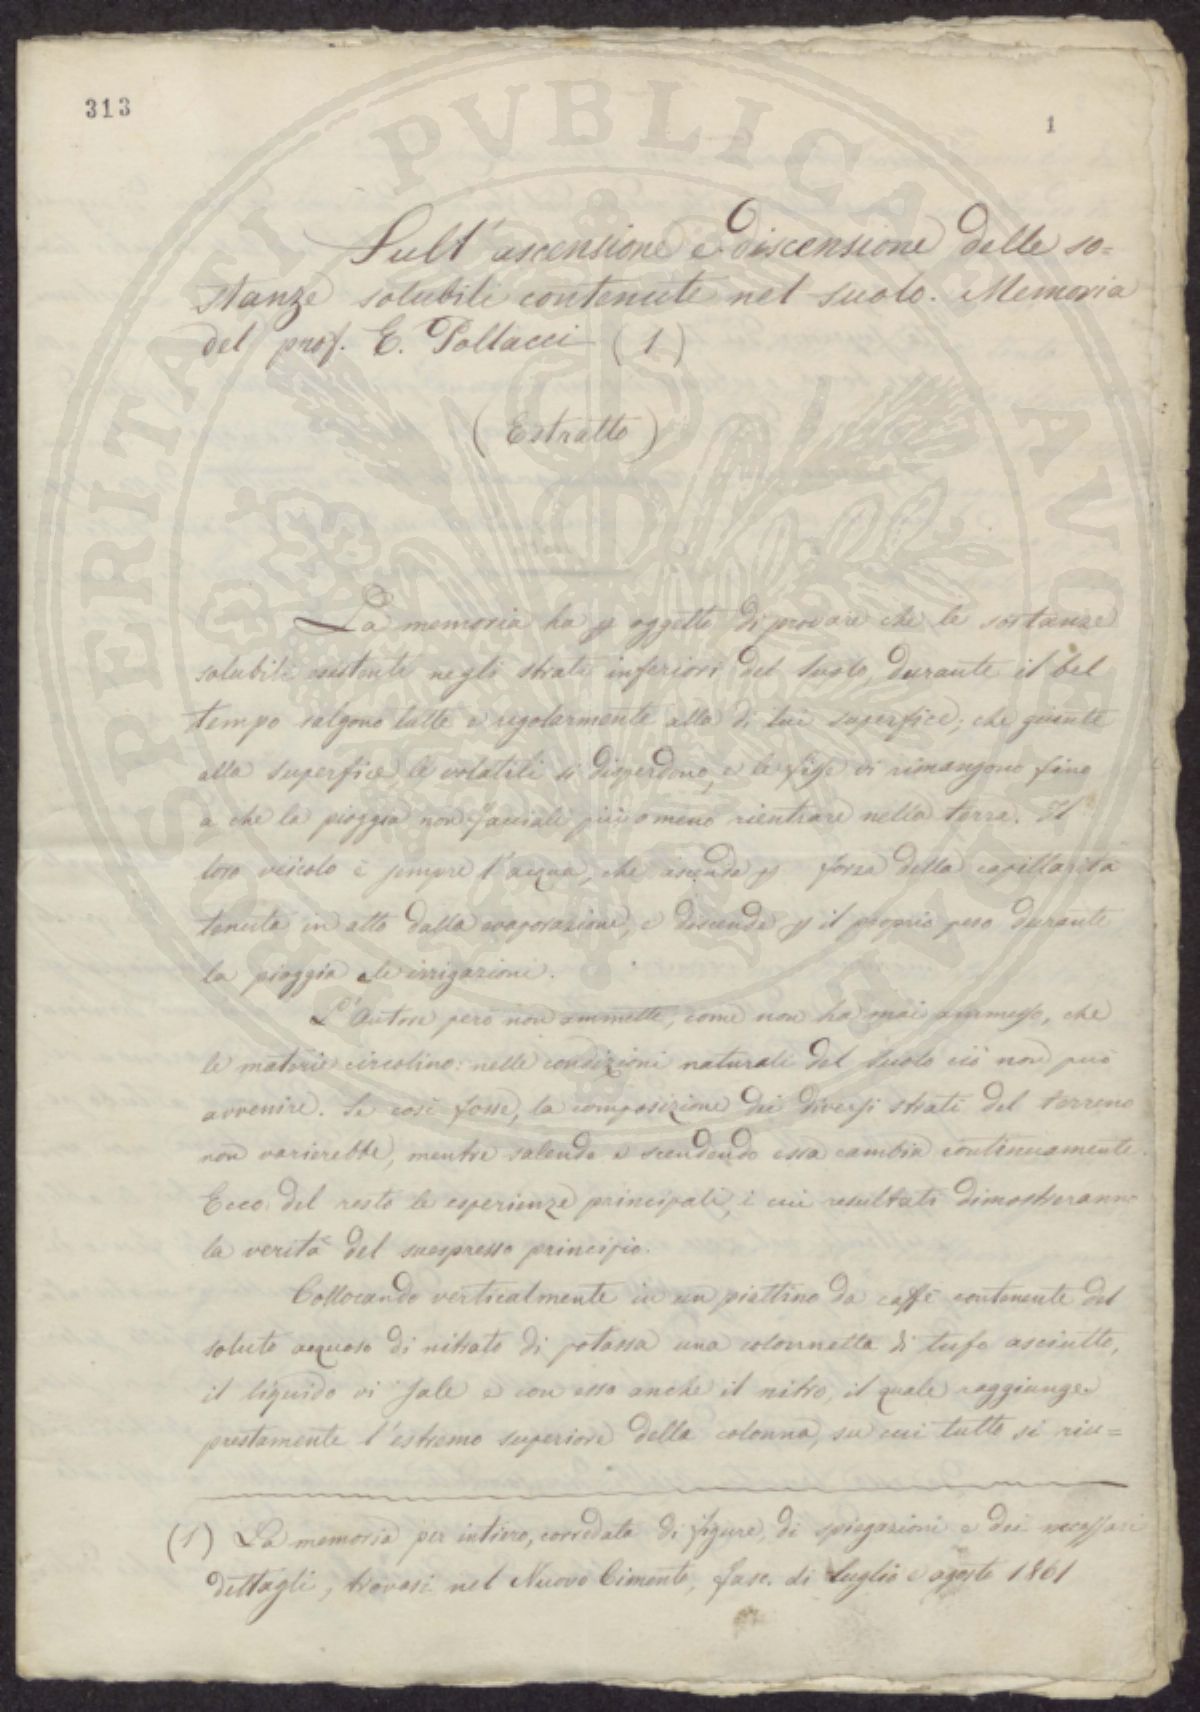 313
1
Sull'ascensione e discensione delle so=
stanze solubili contenute nel suolo. Memoria
del prof. E. Pollacci (1)
(Estratto)
La memoria ha p oggetto di provare che le sostanze
solubili esistenti negli strati inferiori del suolo, durante il bel
tempo salgono tutte e regolarmente alla di lui superfice; che giunte
alla superfice, le volatili si disperdono, e le fisse vi rimangono fino
a che la pioggia non facciali più o meno rientrare nella terra. Il
loro veicolo è sempre l'acqua, che ascende p forza della capillarità
tenuta in atto dalla evaporazione, e discende p il proprio peso durante
la pioggia e le irrigazioni.
L'Autore però non ammette, come non ha mai ammesso, che
le materie circolino: nelle condizioni naturali del suolo ciò non può
avvenire. Se così fosse, la composizione dei diversi strati del terreno
non varierebbe, mentre salendo e scendendo essa cambia continuamente.
Ecco del resto le esperienze principali, i cui resultati dimostreranno
la verità del suespresso principio.
Collocando verticalmente in un piattino da caffè contenente del
soluto acquoso di nitrato di potassa una colonnetta di tufo asciutto,
il liquido vi sale e con esso anche il nitro, il quale raggiunge
prestamente l'estremo superiore della colonna, su cui tutto si riu=
(1) La memoria per intiero, corredata di figure, di spiegazioni e dei necessari
dettagli, trovasi nel Nuovo Cimento, fasc. di luglio e agosto 1861
PROSPERITATI PVBLICAE AVGENDAE